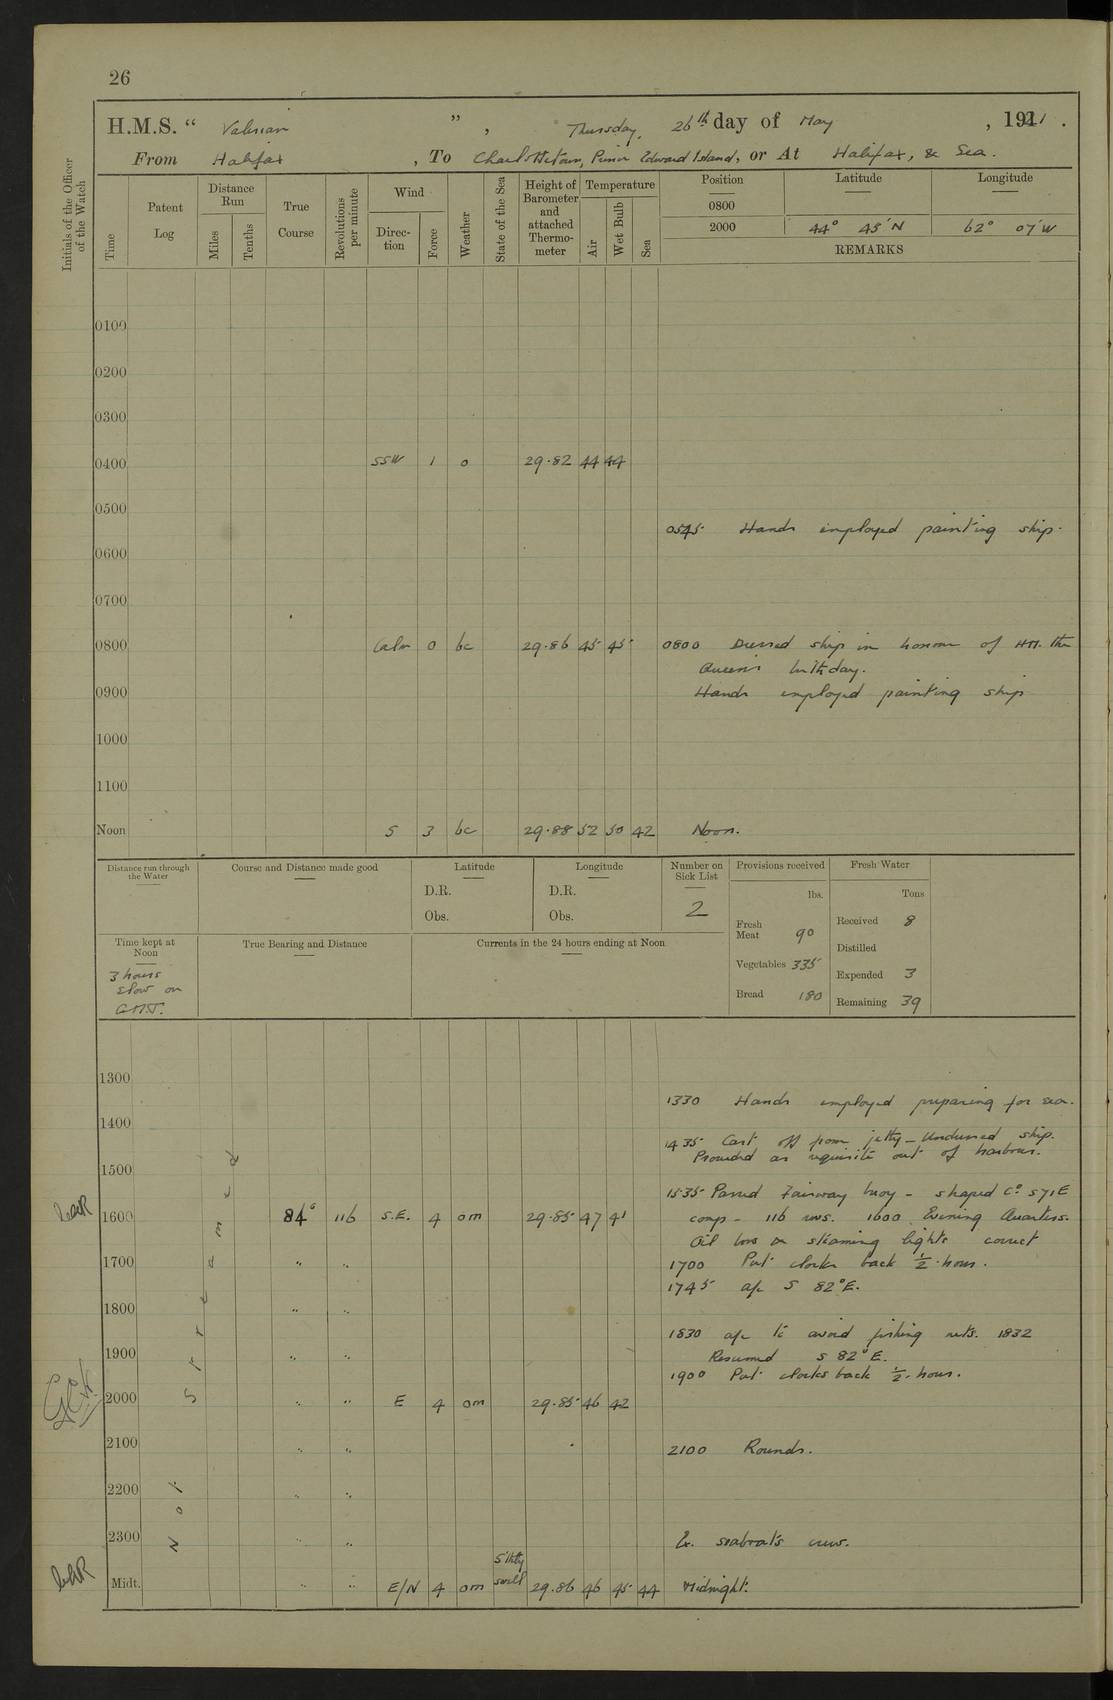 26
H.M.S. “ Valerian ” , Thursday, 26th day of May , 1921 .
From Halifax , To Charlottetown, Prince Edward Island, or At Halifax, & Sea.
Initials of the Officer of the Watch
Time
Patent Log
Distance Run
Miles
Tenths
True Course
Revolutions per minute
Wind
Direction
Force
Weather
State of the Sea
Height of Barometer and attached Thermometer
Temperature
Air
Wet Bulb
Sea
Position Latitude Longitude
0800
2000 44° 45' N 62° 07' W
REMARKS
0100
0200
0300
0400 SSW 1 o 29.82 44 44
0500
0545 Hands employed painting ship.
0600
0700
0800 Calm 0 bc 29.86 45 45 0800 Dressed ship in honour of HM. the
Queen's birthday.
0900 Hands employed painting ship
1000
1100
Noon S 3 bc 29.88 52 50 42 Noon.
Distance run through the Water
Course and Distance made good
Latitude
D.R.
Obs.
Longitude
D.R.
Obs.
Number on Sick List
2
Provisions received
lbs.
Fresh Meat 90
Vegetables 335
Bread 180
Fresh Water
Tons
Received 8
Distilled
Expended 3
Remaining 39
Time kept at Noon
3 hours
slow on
G.M.T.
True Bearing and Distance
Currents in the 24 hours ending at Noon
Not Streamed
1300
1330 Hands employed preparing for sea.
1400
1435 Cast off from jetty – Undressed ship.
Proceeded as requisite out of harbour.
1500
1535 Passed Fairway buoy – shaped Co. S71E
1600 84° 116 S.E. 4 om 29.85 47 41 comp – 116 revs. 1600 Evening Quarters.
Oil bow & steaming lights correct
1700 " " 1700 Put clocks back ½ hour.
1745 a/c S 82° E.
1800 " "
1830 a/c to avoid fishing nets. 1832
1900 " " Resumed S 82° E.
1900 Put clocks back ½ hour.
2000 " " E 4 om 29.85 46 42
2100 " " 2100 Rounds.
2200 " "
2300 " " Ex. seaboat's crew.
Midt. " " E/N 4 om Slhty swell 29.86 46 45 44 Midnight.